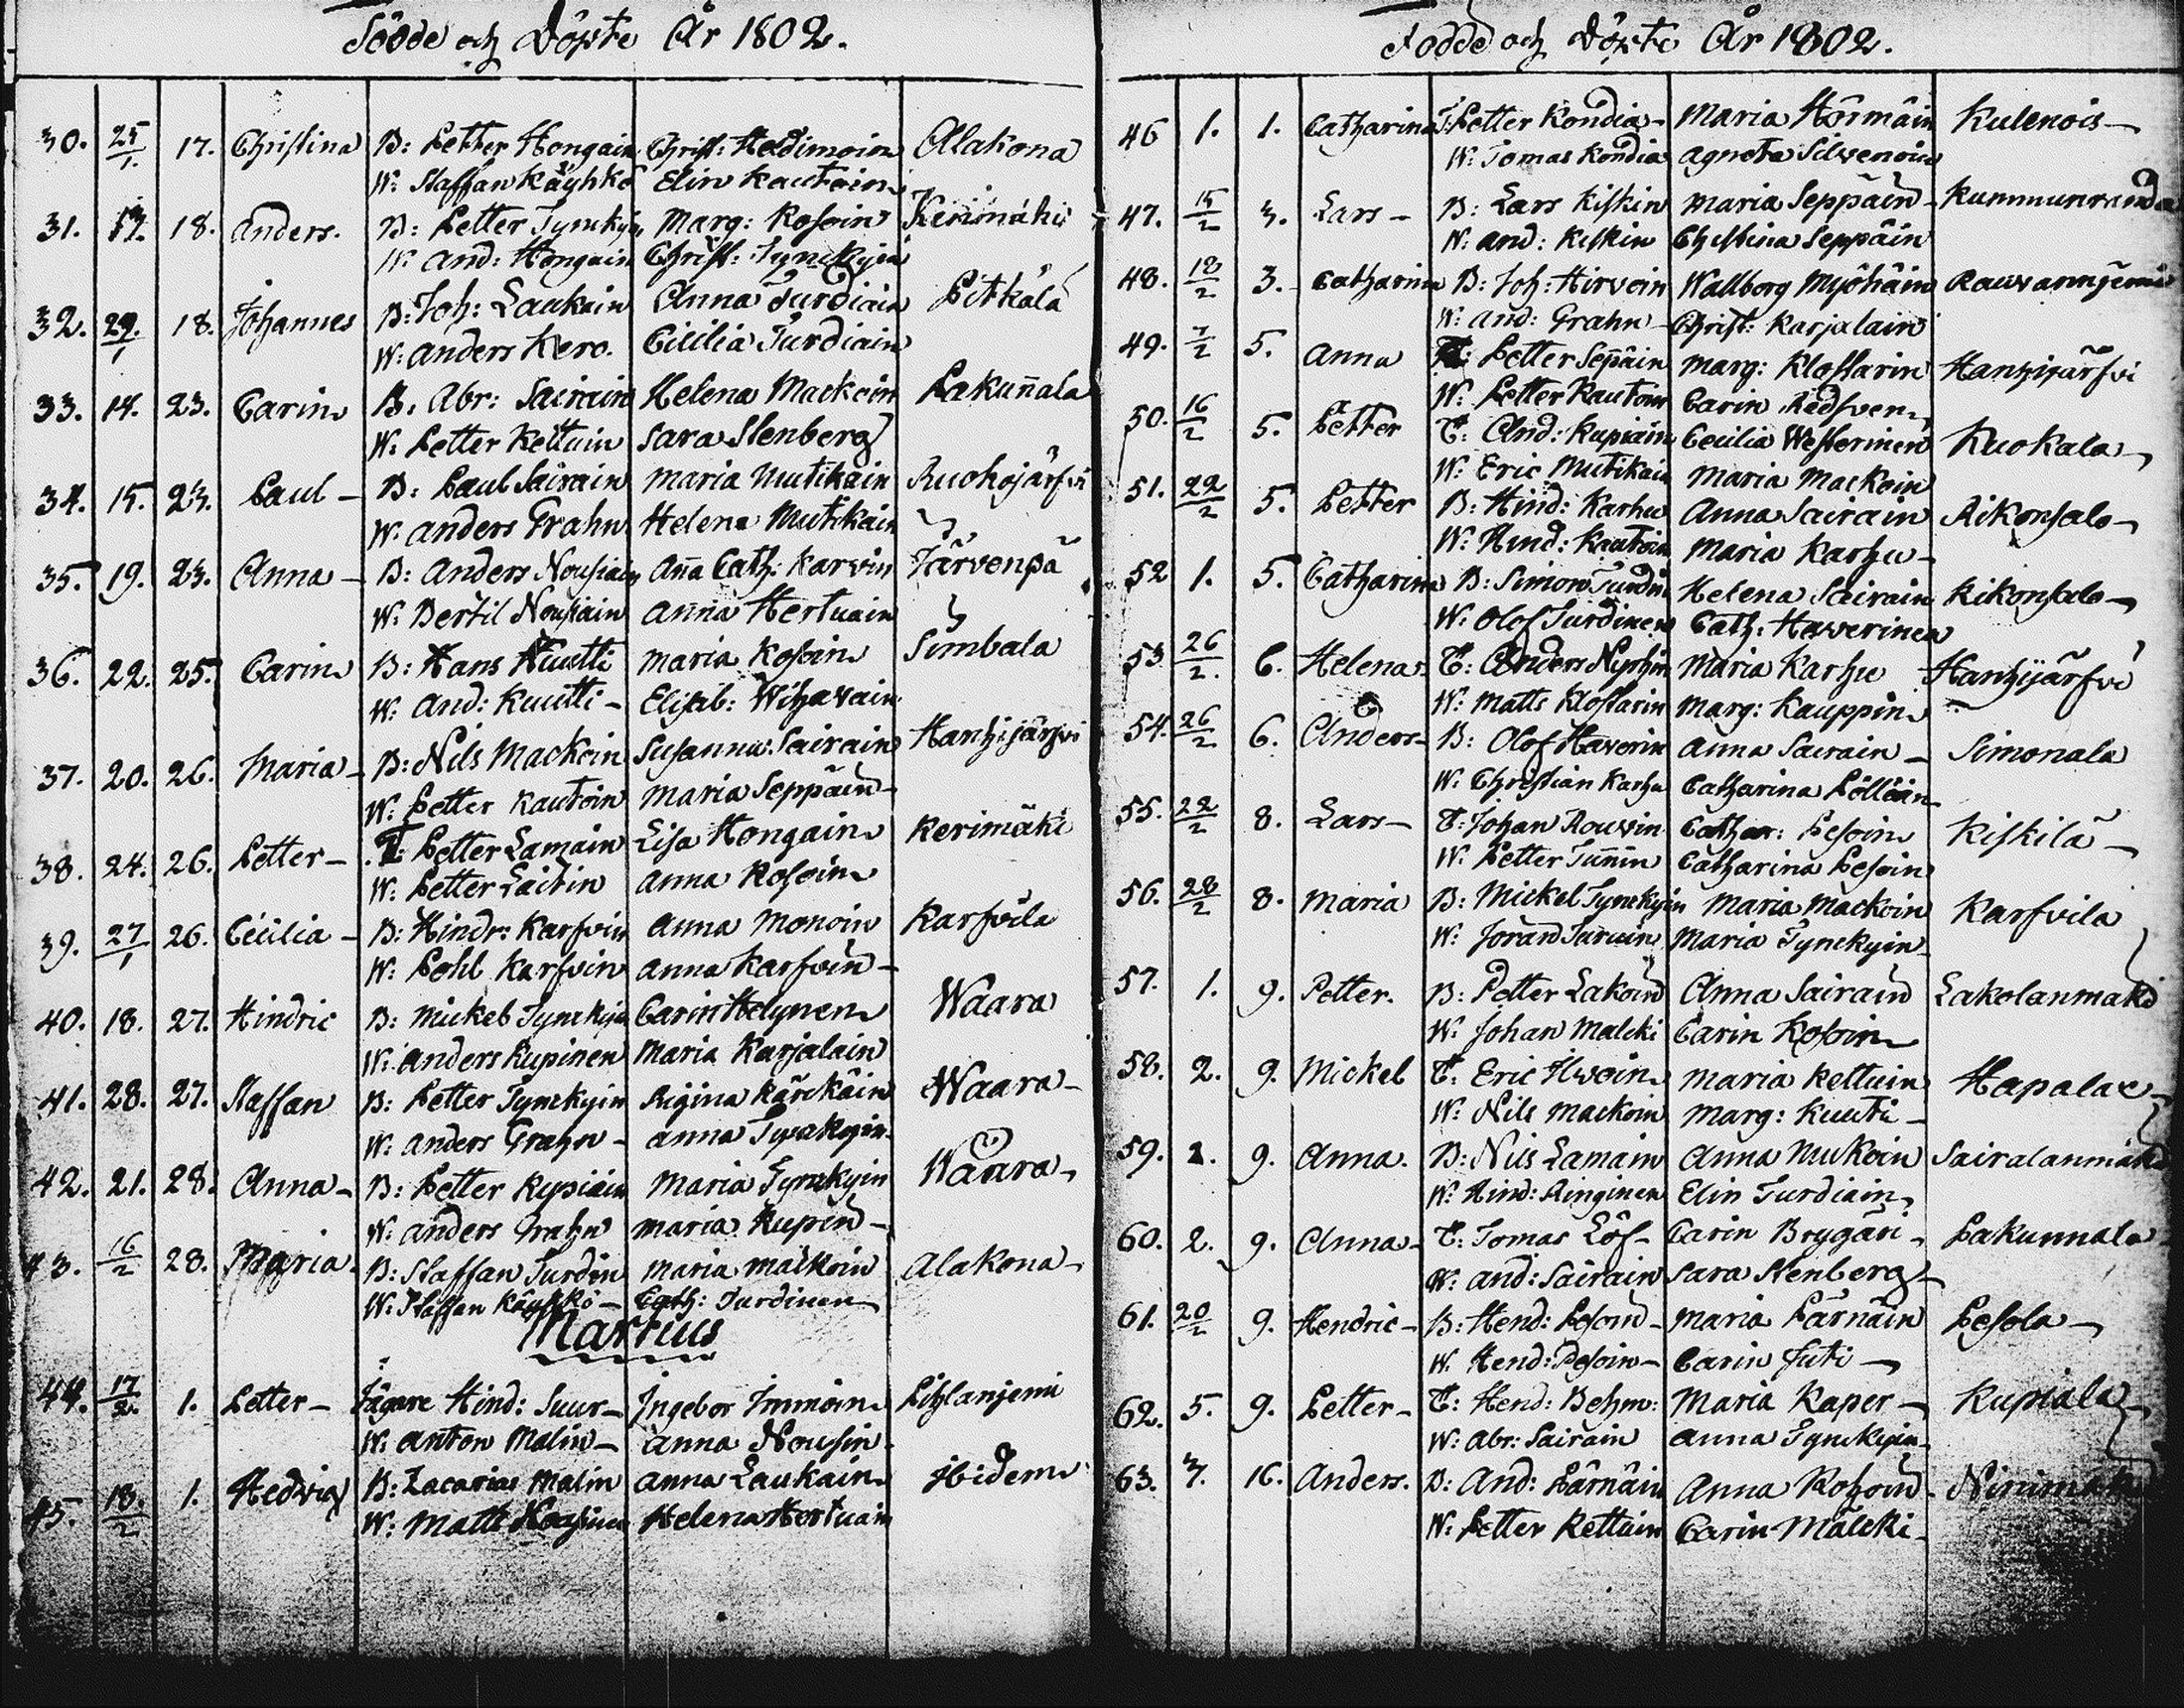 Födde och Döpte År 1802.
30. 25/1. 17. Christina B: Petter Hongain Christ: Heldimoin Alakona
W: Staffan Käyhkö Elin Kautoin
31. 18. Anders. B: Petter Tynckyin Marg: Kosoin Kerimäki
W: And: Hongain Christ: Tynckyin
32. 29./1 18. Johannes B: Joh: Laukain Anna Turdiain Pitkälä
W: Anders Kero. Cicilia Turdiain
33. 14. 23. Carin B. Abr: Sairain Helena Mackoin Pakunala
W. Petter Kettuin Sara Stenberg
34. 15. 23. Paul - B: Paul Sairain Maria Mutikain Ruohojärfvi
W. Anders Grahn Helena Mutikain
35. 19. 23. Anna - B: Anders Nousiain Aña Cath: Karvin Järvenpä
W. Bertil Nousiain Anna Hertuain
36. 22. 25. Carin B: Hans Kuutti Maria Kosoin Simbala
W: And: Kuutti - Elisab: Wihavain
37. 20. 26. Maria - B: Nils Mackoin Susanna Sairain Hanhijärfvi
W. Petter Kautoin Maria Seppäin -
38. 24. 26. Petter - T: Petter Lamain Lisa Hongain Kerimäki
W. Petter Laitin Anna Kosoin
39. 27/1 26. Cecilia - B: Hindr: Karfvin Anna Monoin Karfvila
W. Pohl Karfvin Anna Karfvin -
40. 18. 27. Hindric B: Mickel Tynckyin Carin Helynen Waara
W. Anders Kupinen Maria Karjalain
41. 28. 27. Staffan B: Petter Tynckyin Regina Kärckäin Waara -
W. Anders Grahn - Anna Tynckyin
42. 21. 28. Anna - B: Petter Kypiäin Maria Tynckyin Waara -
W. Anders Grahn Maria Kupin -
43. 16/2 28. Maria. B: Staffan Turdin Maria Mackoin Alakona -
W: Staffan Käyhkö - Cath: Turdinen
Martius
44. 17/2. 1. Petter - Jägare Hind: Suur - Ingebor Immoin Pihlanjemi
W. Anton Malin - Anna Nousin
45. 18./2 1. Hedvig B: Zacarias Malin Anna Laukain ibidem
W: Matt Helena Hertuain
Födde och Döpte År 1802.
46 1. 1. Catharina T. Petter Kondia - Maria Hörmäin Kulenois -
W: Tomas Kondia Agneta Silvenoin
47. 15/2 3. Lars - B: Lars Kiskin Maria Seppäin - Kummunranda
W: And: Kiskin Christina Seppäin
48. 18/2 3. Catharina B: Joh: Hirvoin Wallborg Myöhäin Rauvannjemi
W: And: Grahn - Christ: Karjalain
49. 7/2 5. Anna T: Petter Sepäin Marg: Klossarin Hanhijärfvi
W: Petter Kautoin Carin Rädsven
50. 16/2 5. Petter T: And: Kupiain Cecilia Westerinen Ruokala
W: Eric Mutikain Maria Mackoin
51. 22/2 5. Petter B: Hind: Karhu Anna Sairain Rikonsalo -
W: Hind: Kautoin Maria Karhu -
52 1. 5. Catharina B: Simon Turdin Helena Sairain Rikonsalo -
W: Olof Turdinen Cath: Haverinen
53. 26/2. 6. Helena T: Anders Nyrhin Maria Karhu Hanhijärfvi
W: Matts Klossarin Marg: Kauppin
54. 26/2 6. Anders - B: Olof Haverin Anna Sairain - Simonala
W: Christian Karhu Catharina Pöllöin
55. 22/2 8. Lars - T: Johan Rouvin Cathar: Pesoin Kiskilä -
W: Petter Tuñin Catharina Pesoin
56. 28/2 8. Maria B: Mickel Tynckyin Maria Mackoin Karfvila
W: Jöran Turuin Maria Tynckyin
57. 1. 9. Petter. B: Petter Lakoin Anna Sairain Lakolanmäki
W: Johan Malcki Carin Kosoin
58. 2. 9. Mickel T: Eric Ihvoin Maria Kettuin Hapala
W: Nils Mackoin Marg: Kuuti -
59. 2. 9. Anna. B: Nils Lamain Anna Mukoin Sairalanmäki
W: Hind: Ringinen Elin Turdiain
60. 2. 9. Anna - T: Tomas Löf - Carin Brygäri - Pakunnala
W: And: Sairain Sara Stenberg -
61. 20/2 9. Hendric - B: Hend: Pesoin - Maria Pärnäin Pesola -
W. Hend: Pesoin - Carin Juti -
62. 5. 9. Petter - T: Hend: Behm: Maria Kaper - Kupiala
W: Abr: Sairain Anna Tynckyin
63. 7. 16. Anders. B: And: Pärnäin Anna Kosoin Ninimäki
W: Petter Kettuin Carin Malcki -